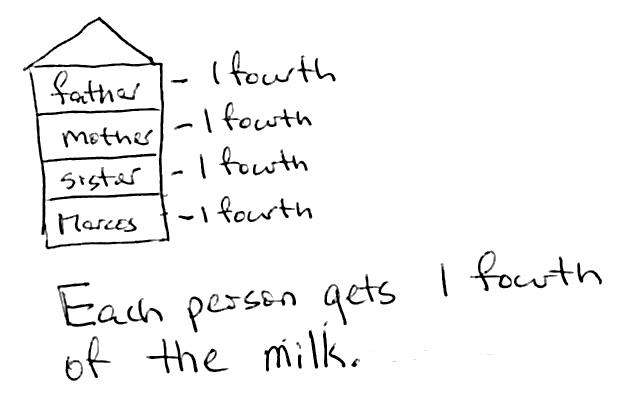 father - 1 fourth
mother - 1 fourth
sister - 1 fourth
Marces - 1 fourth
Each person gets 1 fourth
of the milk.